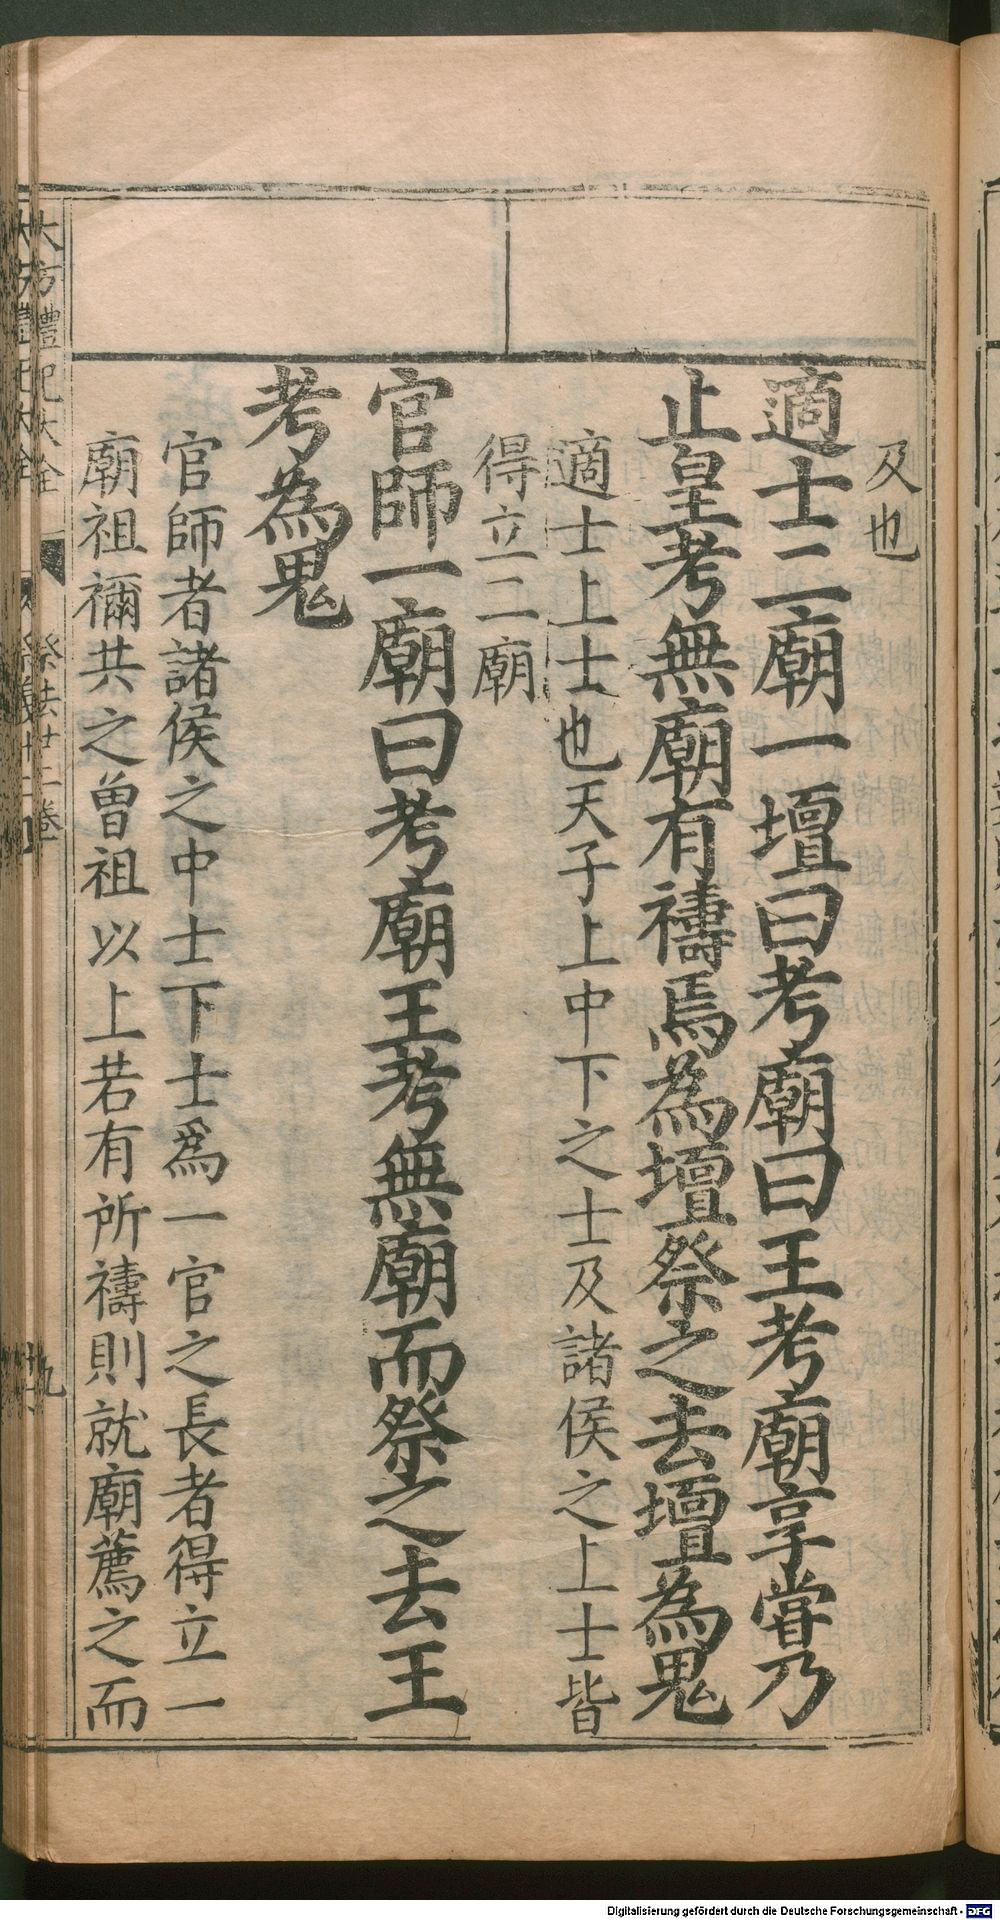 及也
適士二廟一壇曰考廟曰王考廟享嘗乃
止皇考無廟有禱焉為壇祭之去壇為鬼
適士上士也天子上中下之士及諸侯之上士皆
得立二廟
官師一廟曰考廟王考無廟而祭之去王
考為鬼
官師者諸侯之中士下士爲一官之長者得立一
廟祖禰共之曽祖以上若有所禱則就廟薦之而
大方禮記大全 祭法廿二卷 九
Digitalisierung gefördert durch die Deutsche Forschungsgemeinschaft - DFG